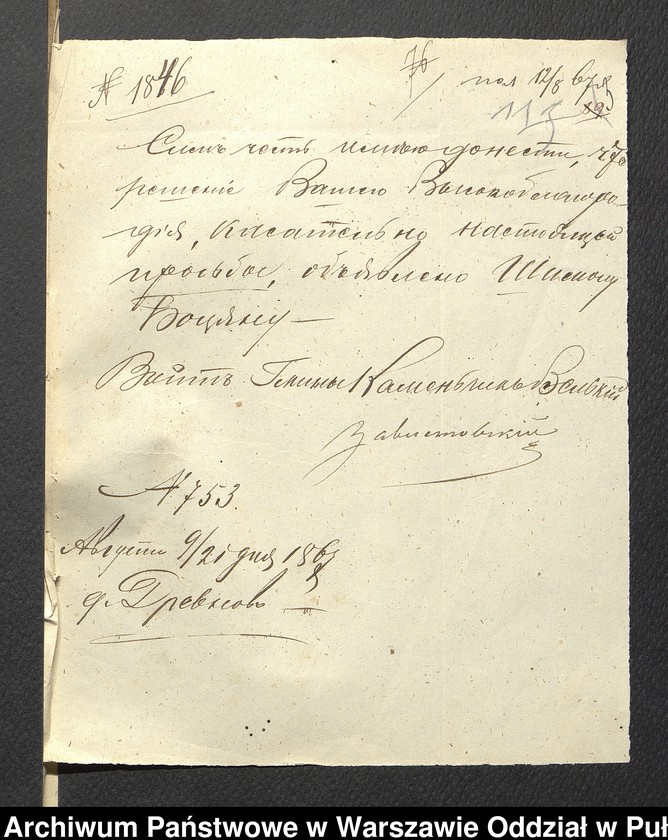 № 1846
пол 12/8
113
Симъ честь имѣю донести, что
решеніе Вашего Высокоблагоро-
дія, касательно настоящей
просьбы, объявлено
Боцяну —
Войтъ Гмины Каменьчикъ
Завистовскій
№ 753.
Августа 9/21 дня
д.
Archiwum Państwowe w Warszawie Oddział w Puł